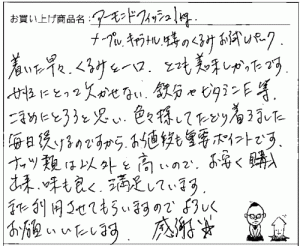 お買い上げ商品名:アーモンドフィッシュ1kg
メープル、キャラメル味のくるみお試しパック
着いた早々、くるみを一口、とても美味しかったです。
女性にとって欠かせない、鉄分やビタミンE等、
こまめにとろうと思い、色々探してたどり着きました
毎日続けるのですから、お値段も重要ポイントです。
ナッツ類は以外と高いので、お安く購入
出来、味も良く、満足しています。
また利用させてもらいますのでよろしく
お願いいたします。 感謝☆